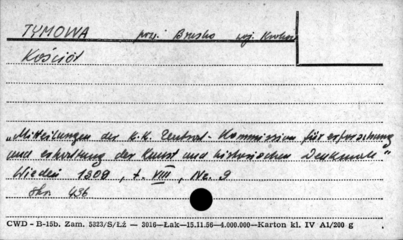 TYMOWA pow. Brzesko woj. Kraków
Kościół
„Mitteilungen der K.K. Zentral-Kommission für erforschung
und erhaltung der Kunst und historischen Denkmale"
Wiedeń 1909, t. VIII, Nr. 9
Skr. 436
CWD - B-15b. Zam. 5323/S/Łż — 3016—Łak—15.11.56—4.000.000—Karton kl. IV A1/200 g